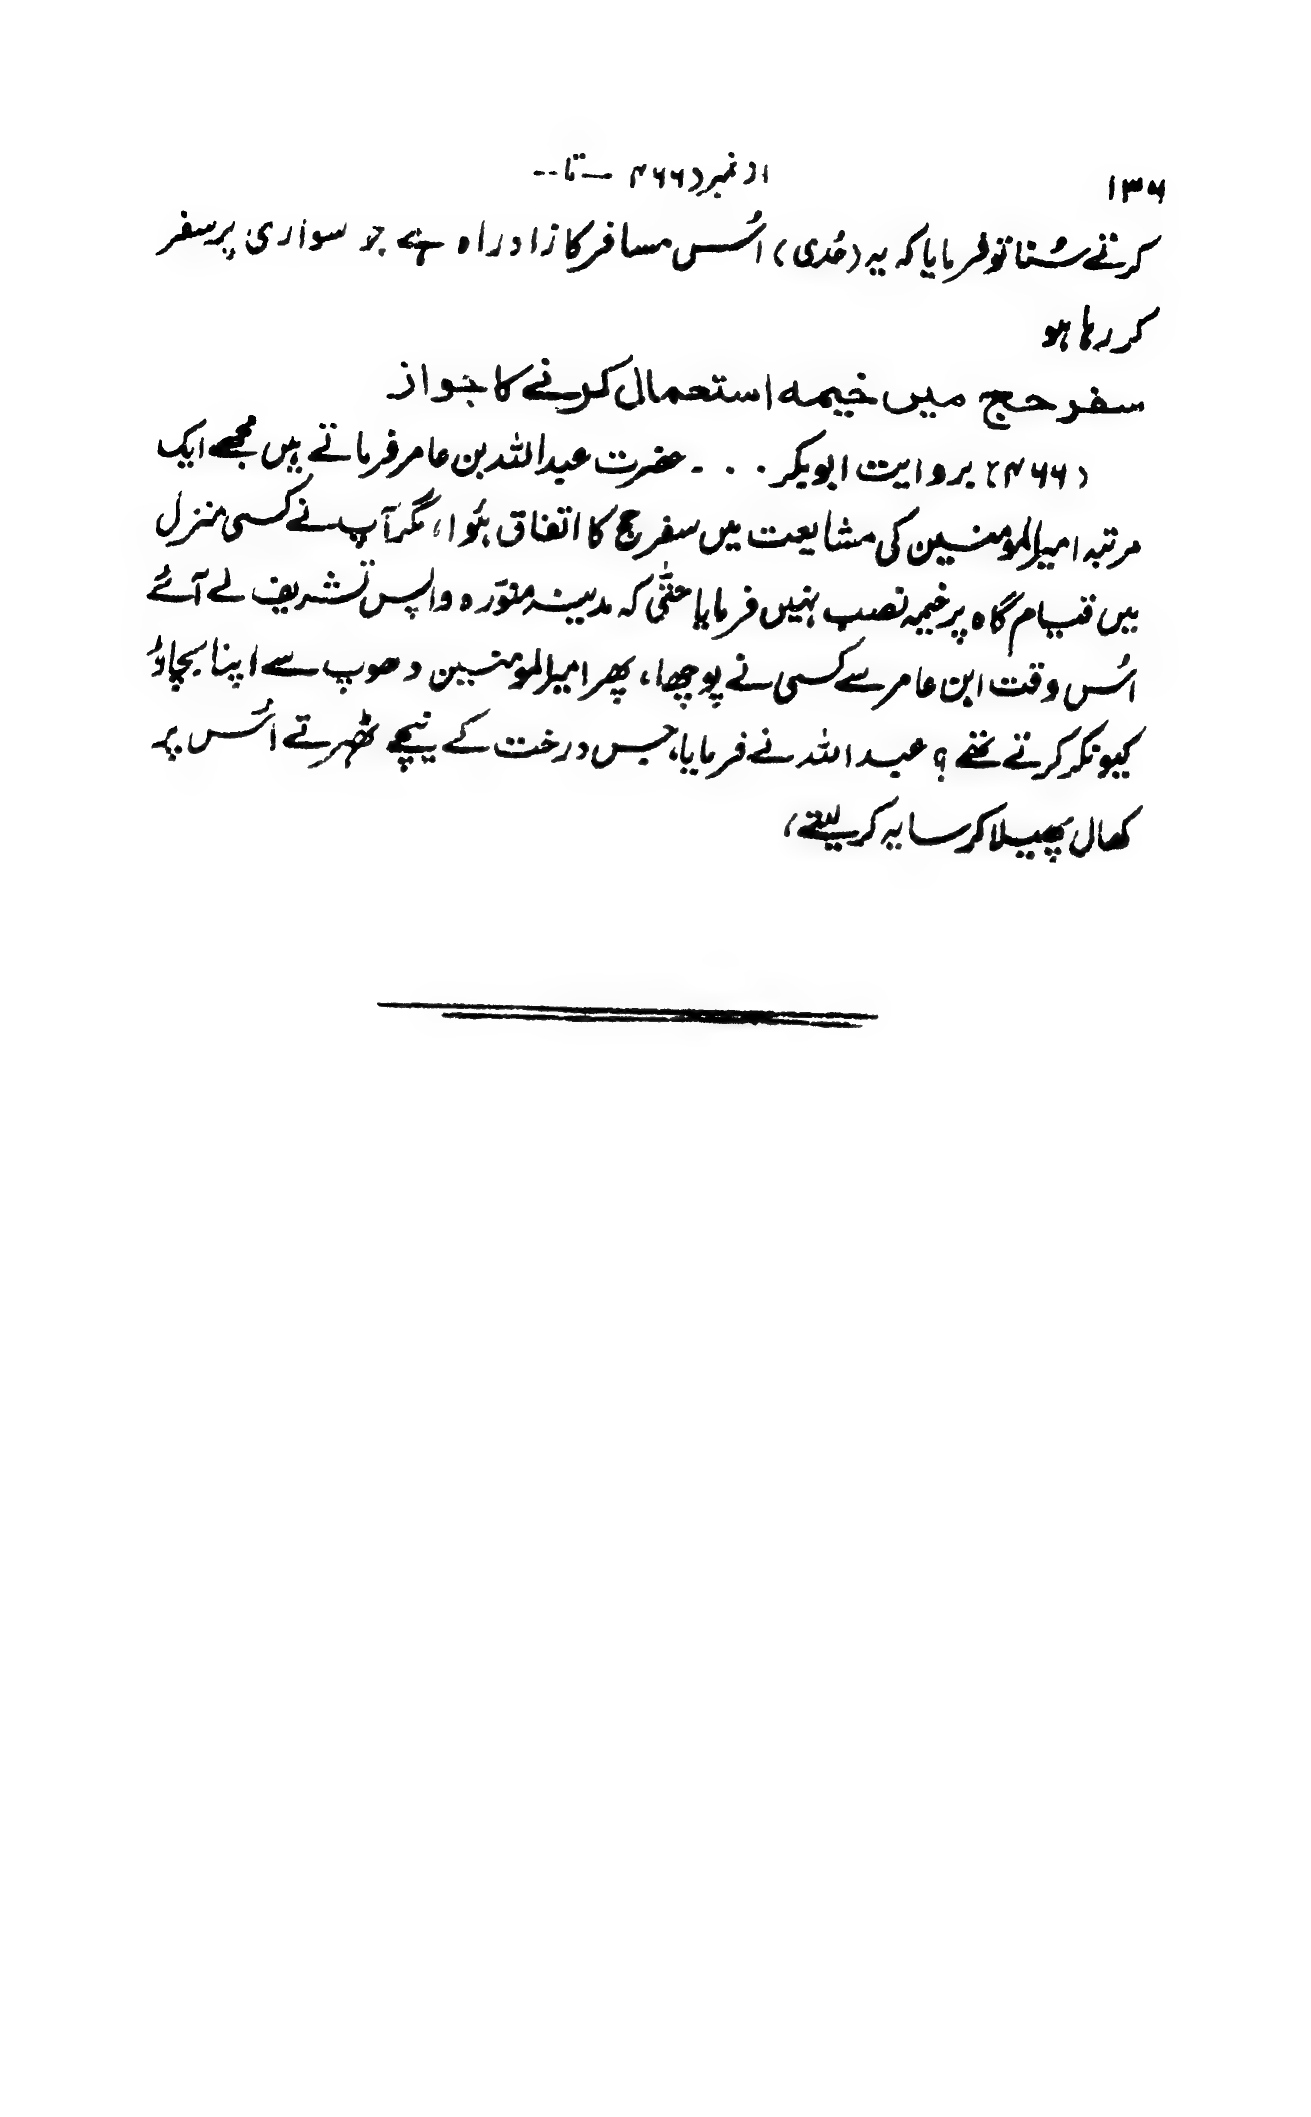 ۱۳۶
از نمبر (۴۶۶ — تا --
کرتے سُنا تو فرمایا کہ یہ (حُدی) اُس مسافر کا زادِ راہ ہے جو سواری پر سفر
کر رہا ہو
سفر حج میں خیمہ استعمال کرنے کا جواز
(۴۶۶) بروایت ابوبکر . . . ۔ حضرت عبداللہ بن عامر فرماتے ہیں مجھے ایک
مرتبہ امیرالمؤمنین کی مشایعت میں سفرِ حج کا اتفاق ہُوا، مگر آپ نے کسی منزل
میں قیام گاہ پر خیمہ نصب نہیں فرمایا حتّٰی کہ مدینہ منوّرہ واپس تشریف لے آئے
اُس وقت ابن عامر سے کسی نے پوچھا، پھر امیرالمومنین دھوپ سے اپنا بچاؤ
کیونکر کرتے تھے ؟ عبداللہ نے فرمایا، جس درخت کے نیچے ٹھہرتے اُس پر
کھال پھیلا کر سایہ کر لیتے،